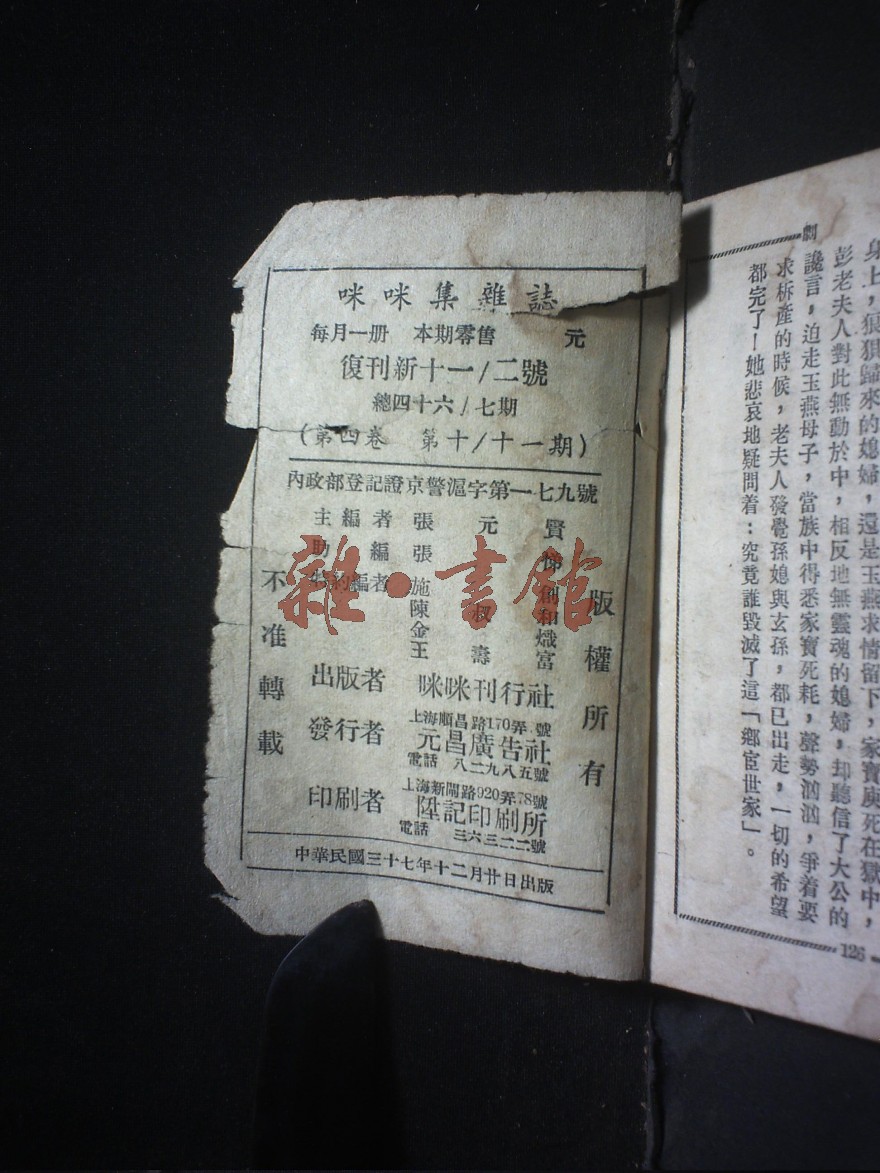 咪咪集雜誌
每月一册 本期零售 元
復刊新十一/二號
總四十六/七期
(第四卷 第十/十一期)
內政部登記證京警滬字第一七九號
主編者 張元賢
助編 張
特約編者 施 創
陳叔和
金 熾
王壽富
出版者 咪咪刊行社
發行者 上海順昌路170弄 號
元昌廣告社
電話 八二九八五號
印刷者 上海新閘路920弄78號
陞記印刷所
電話 三六三二二號
版權所有
不准轉載
中華民國三十七年十二月廿日出版
雜·書館
劇
身上,狼狽歸來的媳婦,還是玉燕求情留下,家寶庾死在獄中,
彭老夫人對此無動於中,相反地無靈魂的媳婦,却聽信了大公的
讒言,迫走玉燕母子,當族中得悉家寶死耗,聲勢汹汹,爭着要
求柝產的時候,老夫人發覺孫媳與玄孫,都已出走,一切的希望
都完了!她悲哀地疑問着:究竟誰毀滅了這「鄉宦世家」。
126